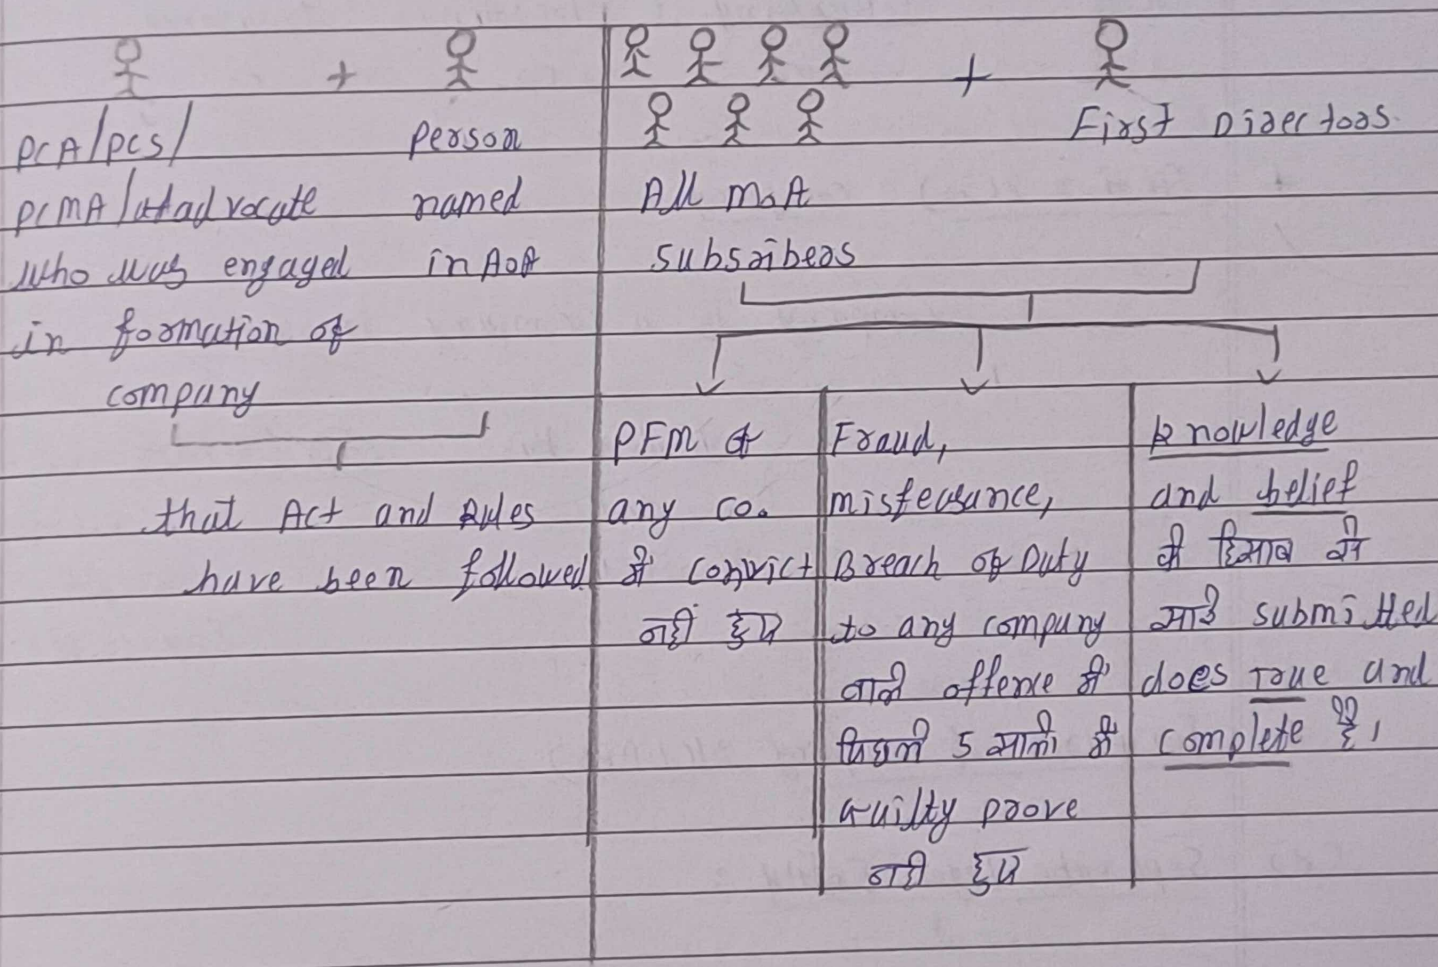 + +
PCA/PCS/
PCMA/advocate
who was engaged
in formation of
company
person
named
in AOA
that Act and Rules
have been followed
All MoA
subscribers
First Directors.
PFM of
any co.
में convict
नहीं हुए
Fraud,
misfeasance,
Breach of Duty
to any company
वाले offence में
पिछले 5 सालों में
Guilty prove
नहीं हुए
knowledge
and belief
के हिसाब से
सारे submitted
docs True and
complete हैं,